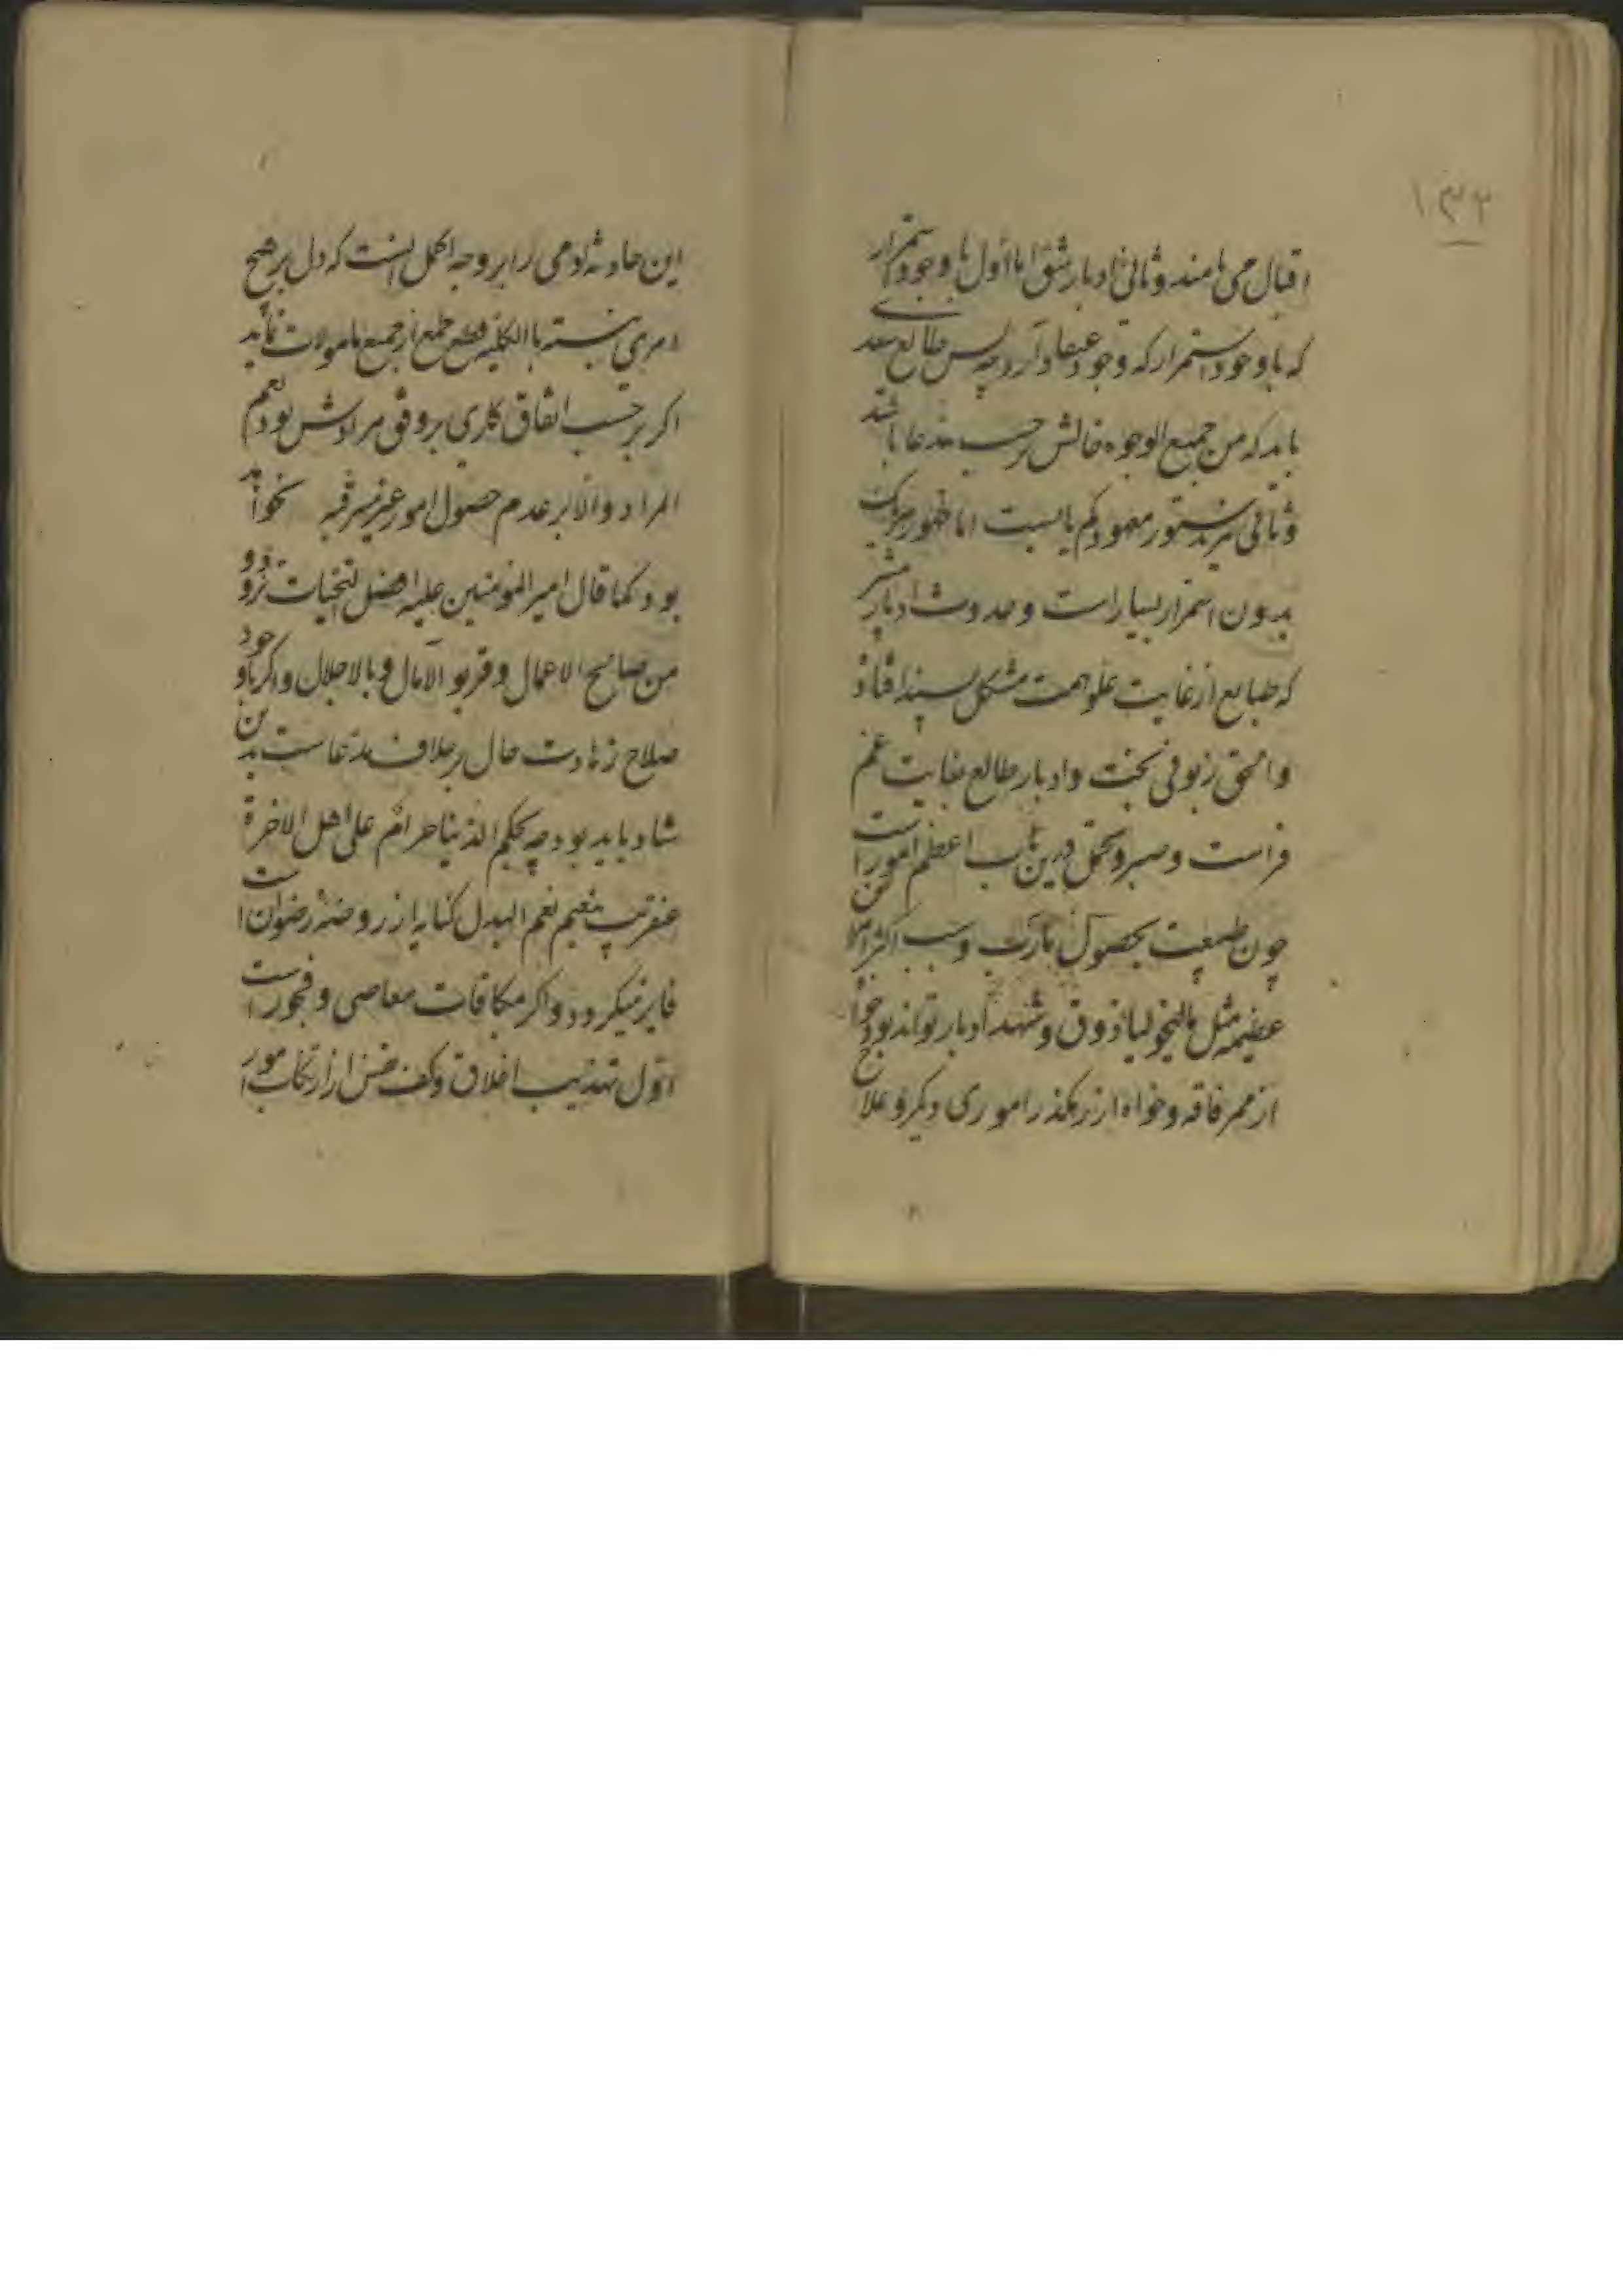 ۱۳۲
اقبال می نامند و ثانی ادبار شق اما اول با وجود استمرار
که با وجود استمرار که وجود عنقا دارد چه بس طالع سعد
باید که من جمیع الوجوه حالش حسب مدعا باشد
و ثانی نیز بدستور معهود کم یابست اما ظهور هر یک
بدون استمرار بسیار است و حدوث ادبار
که طبایع از غایت علو همت مشکل پسند افتاد
و الحق زبونی بخت و ادبار طالع بغایت غم
فراست و صبر و تحمل درین باب اعظم امور است
چون طبیعت بحصول مآرب و سبب اکثر امراض
عظیمه مثل مالیخولیا ذوق و شهد ادبار تواند بود خواه
از ممر فاقه و خواه از رهگذر اموری دیگر و علاج
این حادثه آدمی را بر وجه اکمل آنست که دل بر هیچ
امری نبسته بالکلیه قطع طمع از جمیع مامولات نماید
اگر بر حسب اتفاق کاری بر وفق مرادش بود نعم
المراد و الا بر عدم حصول امور غیر مترقبه نخواهد
بود کما قال امیر المومنین علیه افضل التحیات تزودوا
من صالح الاعمال و قربوا الآمال و بالاجلال و اگر با وجود
صلاح زهادت حال بر خلاف مدعاست بدین
شاد باید بود چه بحکم الدنیا حرام علی اهل الاخرة
عنقریب بنعیم نعم البدل کنایه از روضه رضوان است
فایز میگردد و اگر مکافات معاصی و فجور است
اول تهذیب اخلاق و کف نفس از ارتکاب امور